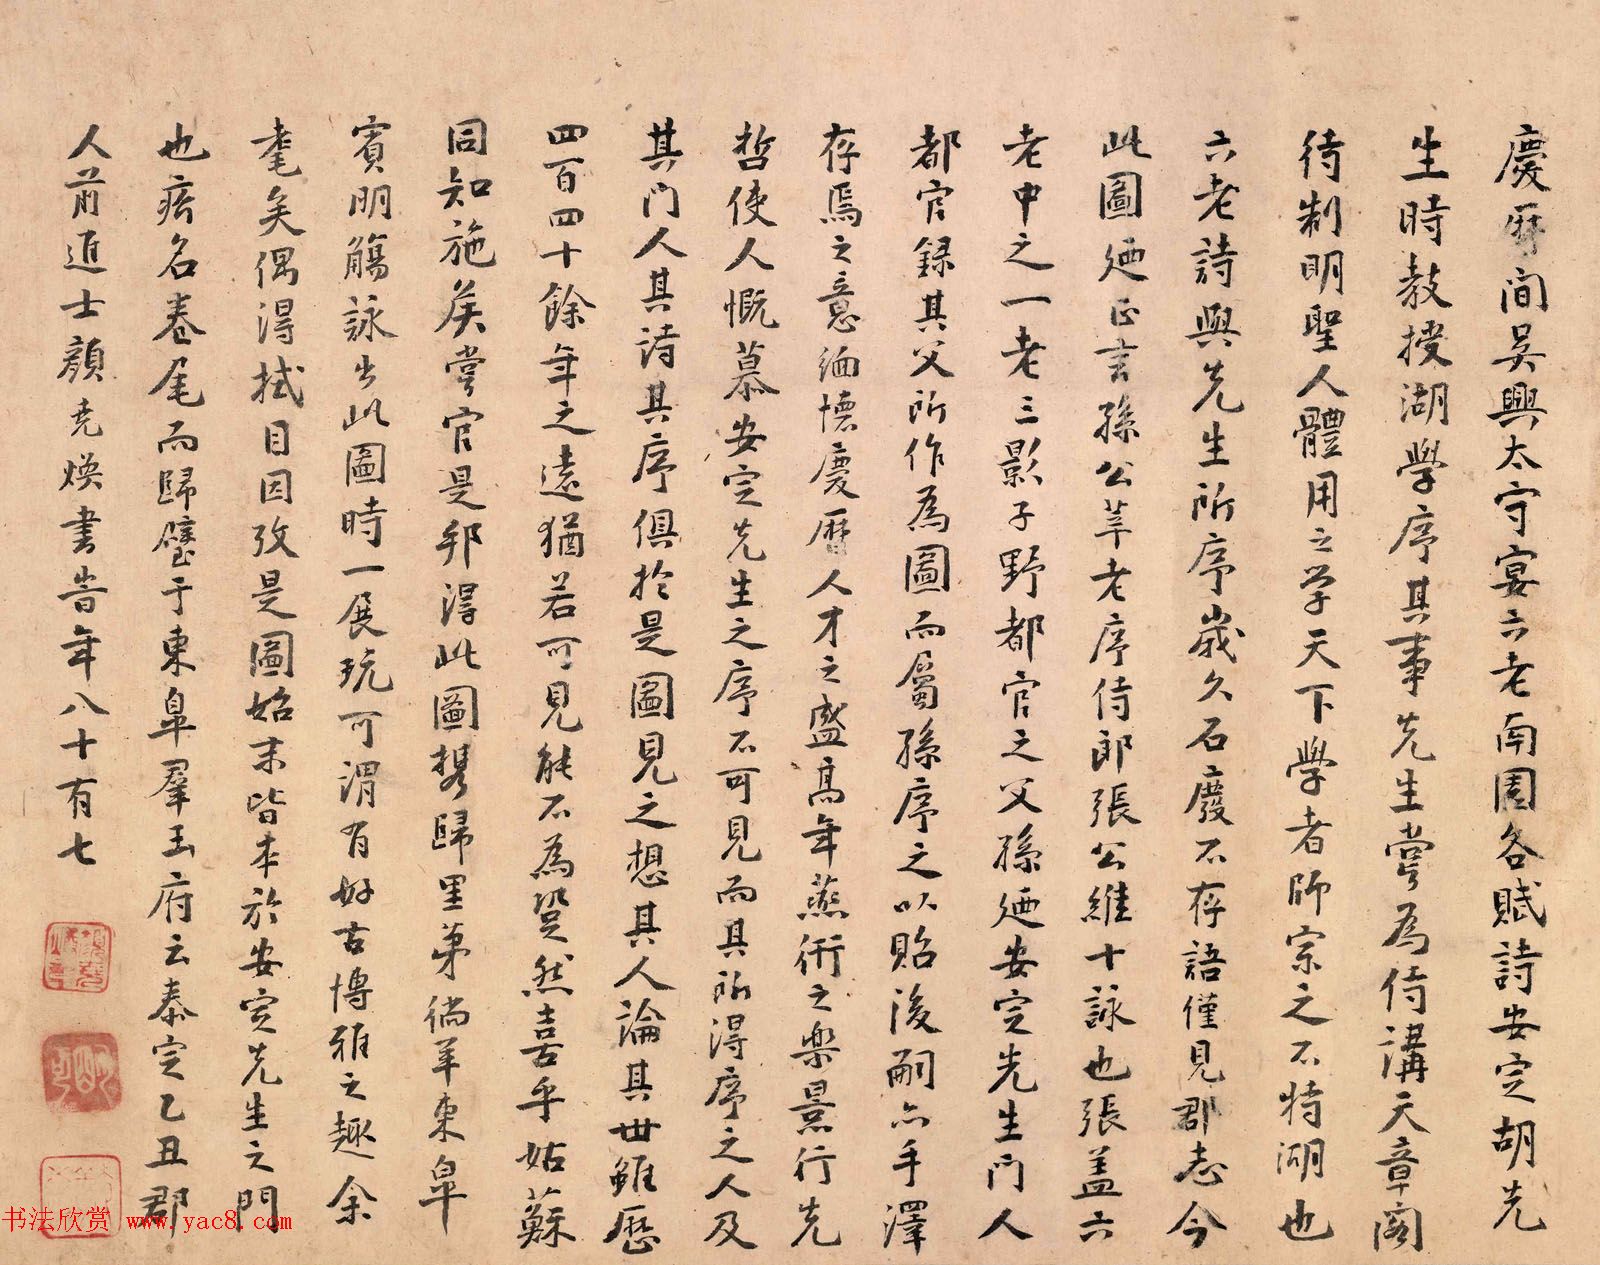 慶曆間吴興太守宴六老南園各賦詩安定胡先
生時教授湖學序其事先生嘗為侍講天章閣
待制明聖人體用之学天下學者師宗之不特湖也
六老詩與先生所序歲久石廢不存語僅見郡志今
此圖廼正言孫公莘老序侍郎張公維十詠也張盖六
老中之一老三影子野都官之父孫廼安定先生門人
都官録其父所作為圖而屬孫序之以貽後嗣亦手澤
存焉之意缅懐慶曆人才之盛髙年燕衎之樂景行先
哲使人慨慕安定先生之序不可見而其所得序之人及
其門人其诗其序俱扵是圖見之想其人論其世雖歷
四百四十餘年之遠猶若可見能不為跫然喜乎姑蘇
同知施矦嘗官是邦得此圖携歸里第徜羊東皐
賓明觴詠出此圖時一展玩可謂有好古博雅之趣余
耄矣偶得拭目因攷是圖始末皆本於安定先生之門
也㾗名卷尾而歸璧于東皐羣玉府云泰定乙丑郡
人前進士顔堯焕書旹年八十有七
书法欣赏 www.yac8.com